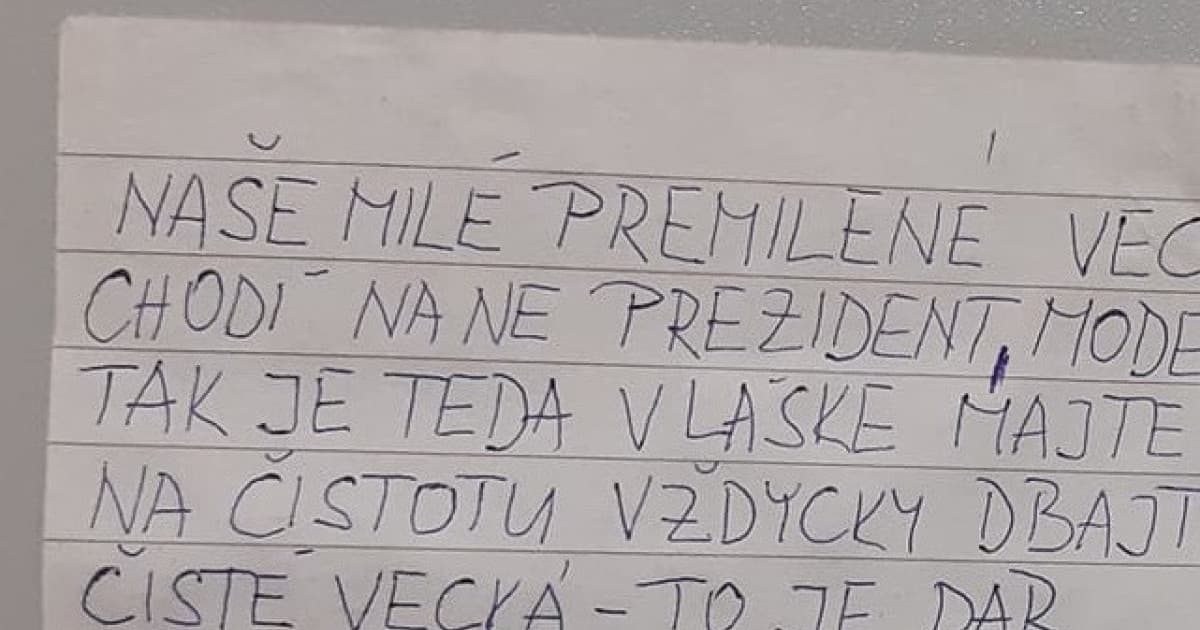 NAŠE MILÉ PREMILÉNE VEC
CHODÍ NA NE PREZIDENT, MODE
TAK JE TEDA V LÁSKE MAJTE
NA ČISTOTU VŽDYCKY DBAJT
ČISTÉ VECKÁ - TO JE DAR